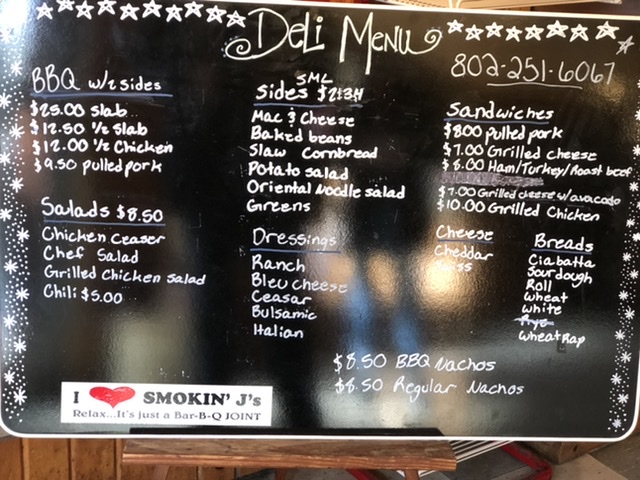 Deli Menu
802-251-6067
BBQ w/2 sides
$25.00 Slab
$12.50 1/2 Slab
$12.00 1/2 Chicken
$9.50 pulled pork
Salads $8.50
Chicken Ceaser
Chef Salad
Grilled Chicken Salad
Chili $5.00
SML
Sides $2 $3 $4
Mac & Cheese
Baked beans
Slaw Cornbread
Potato salad
Oriental Noodle salad
Greens
Dressings
Ranch
Bleu cheese
Ceasar
Bulsamic
Italian
Sandwiches
$8.00 pulled pork
$7.00 Grilled cheese
$8.00 Ham/Turkey/Roast beef
$7.00 Grilled cheese w/avacado
$10.00 Grilled Chicken
Cheese
Cheddar
Swiss
Breads
Ciabatta
Sourdough
Roll
Wheat
White
Rye
Wheat Rap
$8.50 BBQ Nachos
$8.50 Regular Nachos
I ❤ SMOKIN' J's
Relax...It's just a Bar-B-Q JOINT